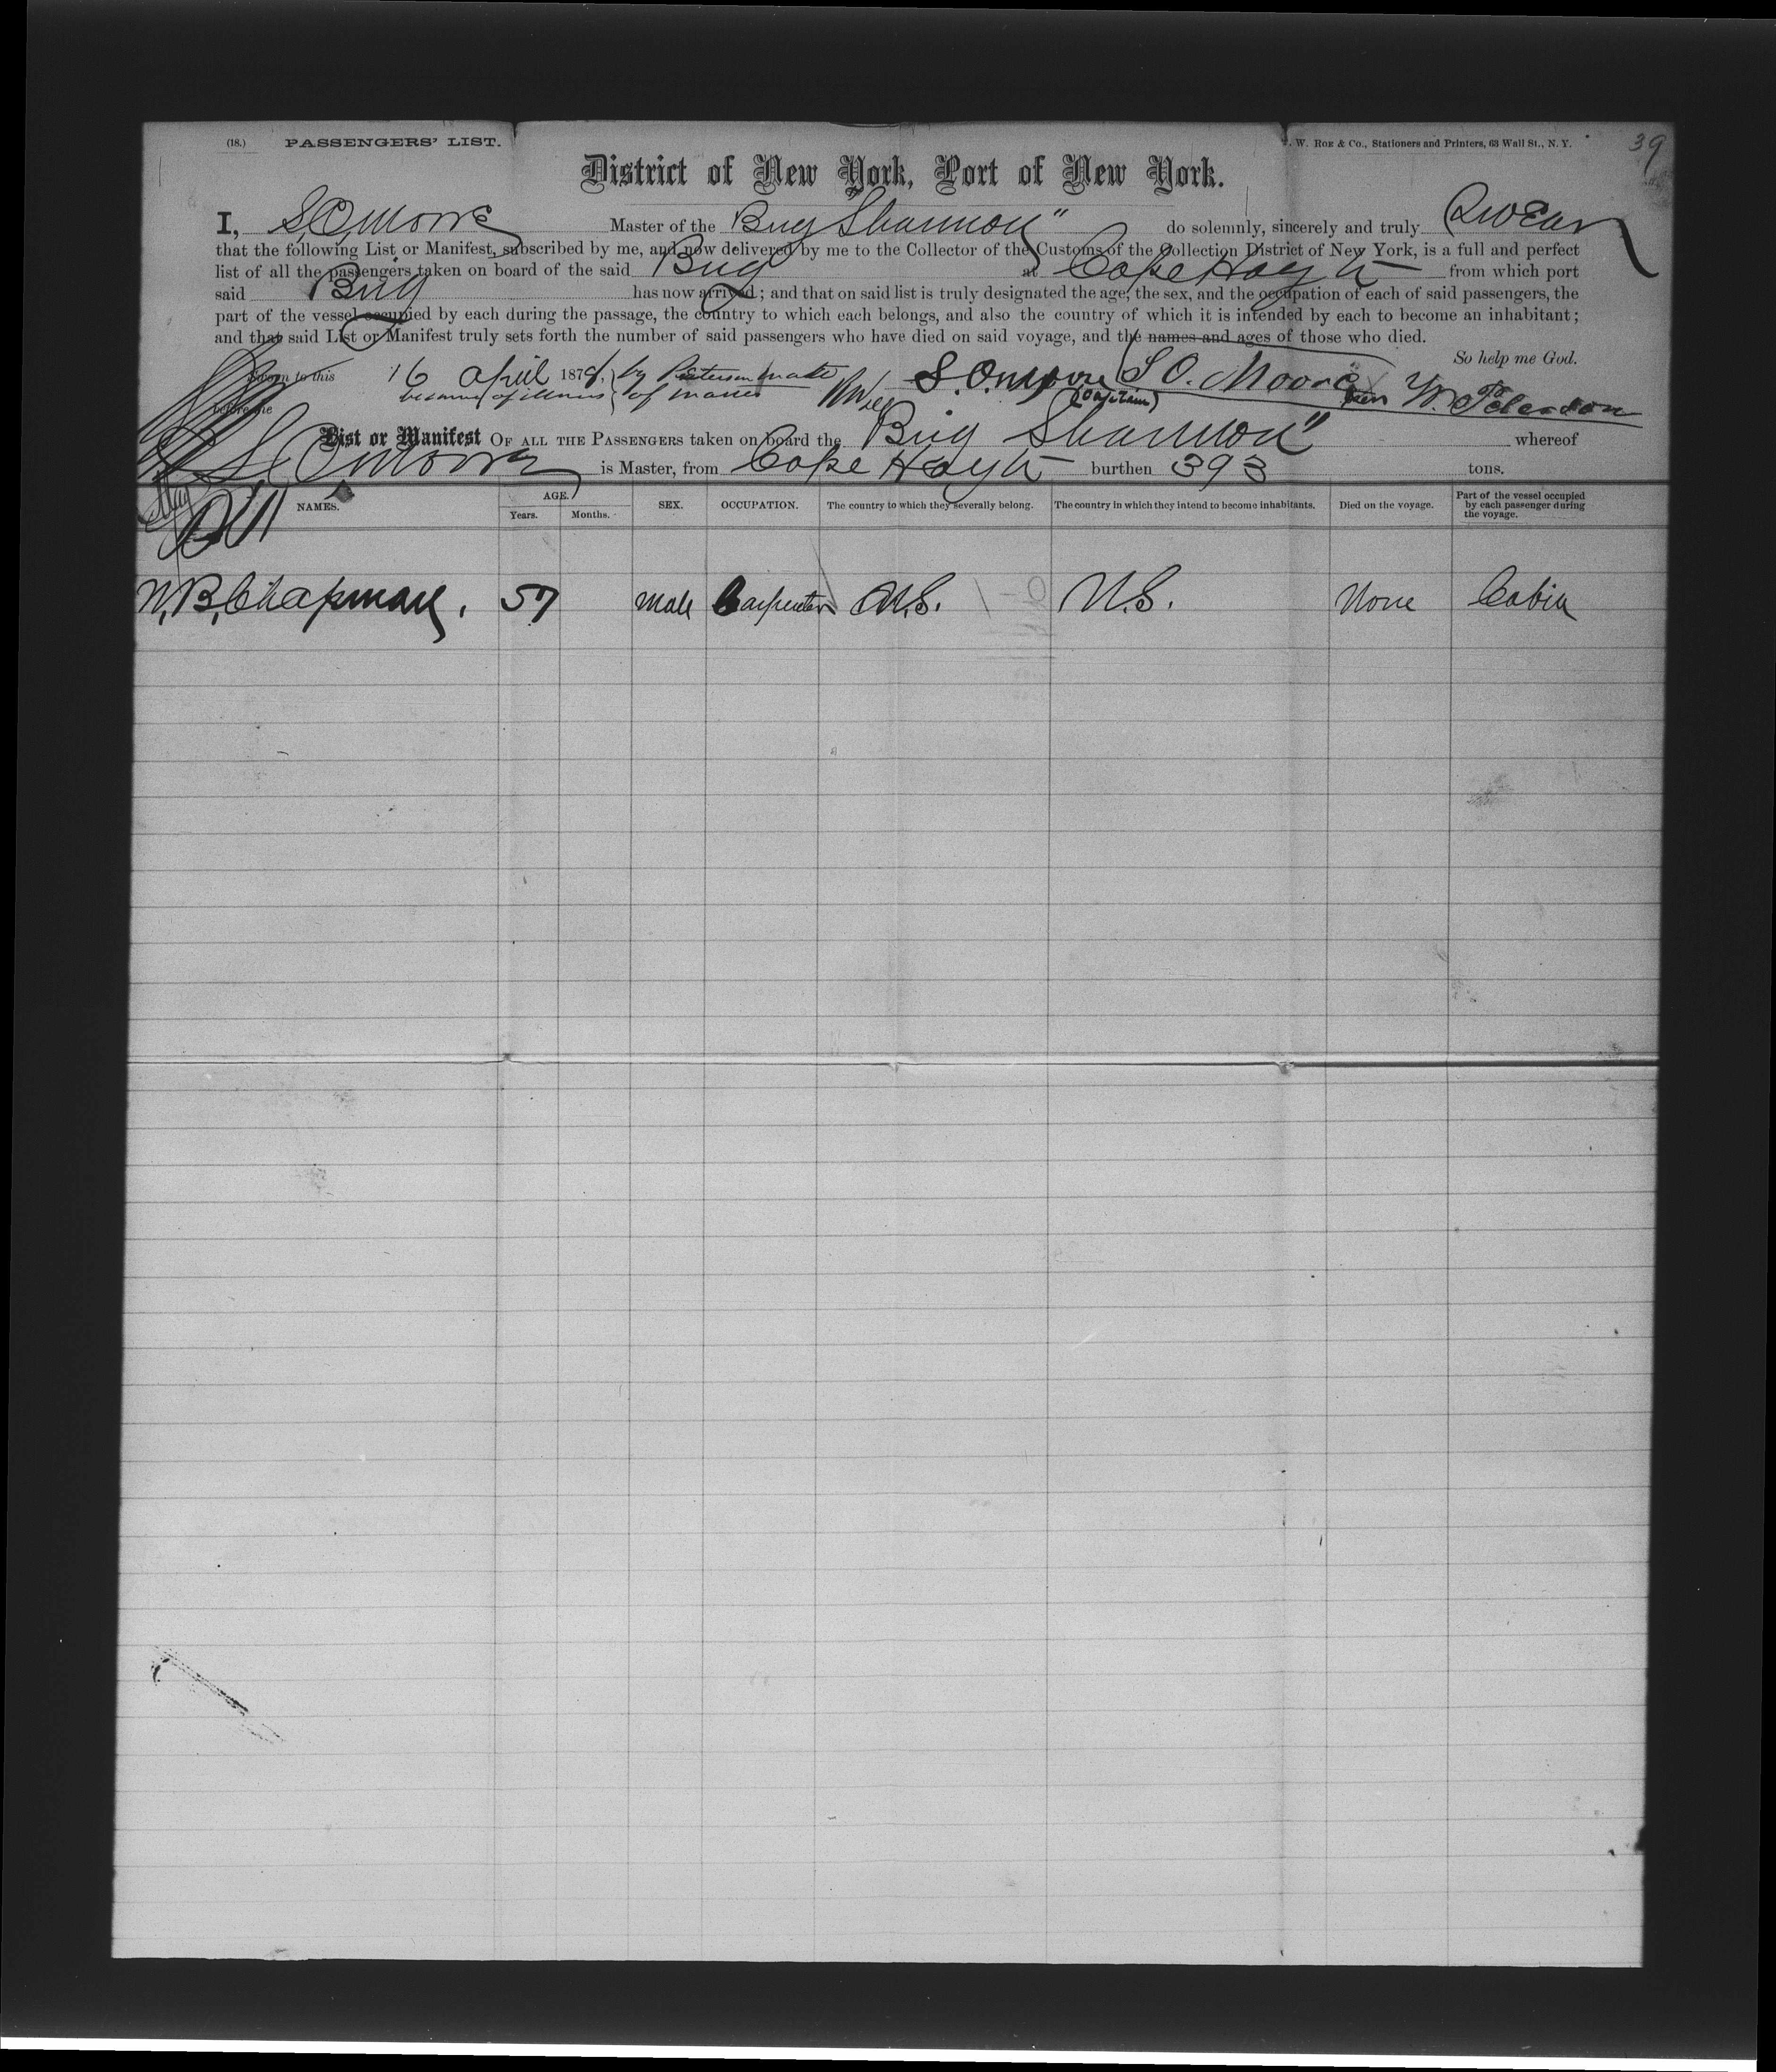 (18.) PASSENGERS' LIST. W. Roe & Co., Stationers and Printers, 63 Wall St., N. Y. 39
District of New York, Port of New York.
I, S.O. Moore Master of the Brig "Shannon" do solemnly, sincerely and truly Swear
that the following List or Manifest, subscribed by me, and now delivered by me to the Collector of the Customs of the Collection District of New York, is a full and perfect
list of all the passengers taken on board of the said Brig at Cape Hayti from which port
said Brig has now arrived; and that on said list is truly designated the age, the sex, and the occupation of each of said passengers, the
part of the vessel occupied by each during the passage, the country to which each belongs, and also the country of which it is intended by each to become an inhabitant;
and that said List or Manifest truly sets forth the number of said passengers who have died on said voyage, and the names and ages of those who died.
So help me God.
Sworn to this 16 April 1878. by Peterson mate S. O. Moore S O. Moore W. Peterson
because of illness of master (Captain)
before me
List or Manifest OF ALL THE PASSENGERS taken on board the Brig Shannon" whereof
S O Moore is Master, from Cape Hayti burthen 393 tons.
NAMES. AGE. Years. Months. SEX. OCCUPATION. The country to which they severally belong. The country in which they intend to become inhabitants. Died on the voyage. Part of the vessel occupied by each passenger during the voyage.
W. B. Chapman. 57 Male Carpenter U.S. U.S. None Cabin